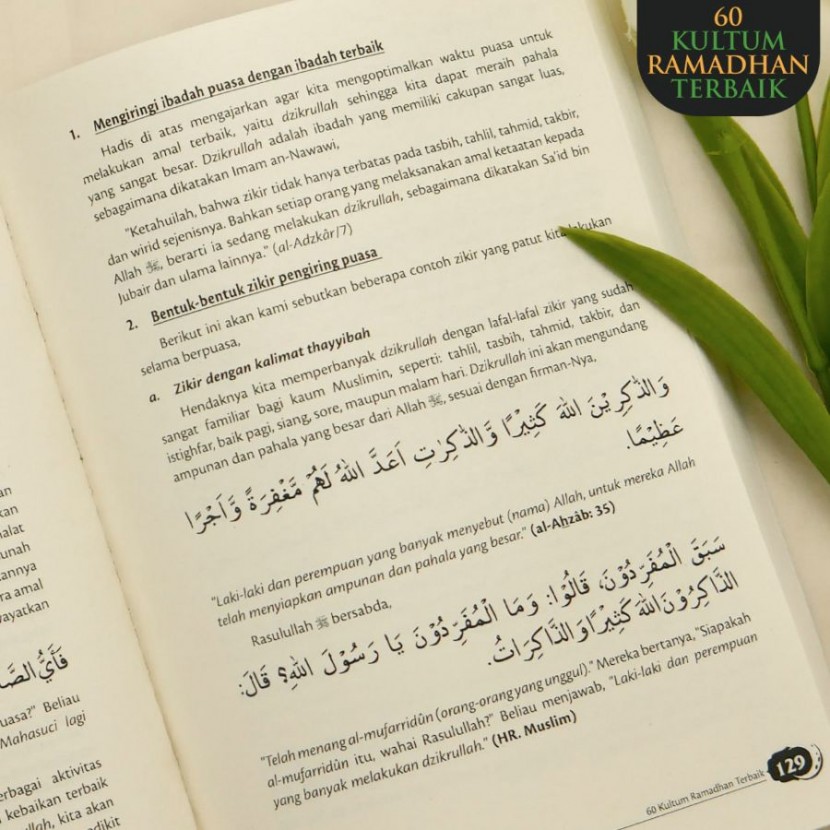 60
KULTUM
RAMADHAN
TERBAIK
1. Mengiringi ibadah puasa dengan ibadah terbaik
Hadis di atas mengajarkan agar kita mengoptimalkan waktu puasa untuk
melakukan amal terbaik, yaitu dzikrullah sehingga kita dapat meraih pahala
yang sangat besar. Dzikrullah adalah ibadah yang memiliki cakupan sangat luas,
sebagaimana dikatakan Imam an-Nawawi,
"Ketahuilah, bahwa zikir tidak hanya terbatas pada tasbih, tahlil, tahmid, takbir,
dan wirid sejenisnya. Bahkan setiap orang yang melaksanakan amal ketaatan kepada
Allah ﷻ, berarti ia sedang melakukan dzikrullah, sebagaimana dikatakan Sa'id bin
Jubair dan ulama lainnya." (al-Adzkâr/7)
2. Bentuk-bentuk zikir pengiring puasa
Berikut ini akan kami sebutkan beberapa contoh zikir yang patut kita lakukan
selama berpuasa,
a. Zikir dengan kalimat thayyibah
Hendaknya kita memperbanyak dzikrullah dengan lafal-lafal zikir yang sudah
sangat familiar bagi kaum Muslimin, seperti: tahlil, tasbih, tahmid, takbir, dan
istighfar, baik pagi, siang, sore, maupun malam hari. Dzikrullah ini akan mengundang
ampunan dan pahala yang besar dari Allah ﷻ, sesuai dengan firman-Nya,
وَالذّٰكِرِيْنَ اللّٰهَ كَثِيْرًا وَّالذّٰكِرٰتِ اَعَدَّ اللّٰهُ لَهُمْ مَّغْفِرَةً وَّاَجْرًا
عَظِيْمًا.
"Laki-laki dan perempuan yang banyak menyebut (nama) Allah, untuk mereka Allah
telah menyiapkan ampunan dan pahala yang besar." (al-Aḥzâb: 35)
Rasulullah ﷺ bersabda,
سَبَقَ الْمُفَرِّدُوْنَ، قَالُوْا: وَمَا الْمُفَرِّدُوْنَ يَا رَسُوْلَ اللهِ؟ قَالَ:
الذَّاكِرُوْنَ اللهَ كَثِيْرًا وَالذَّاكِرَاتُ.
"Telah menang al-mufarridûn (orang-orang yang unggul)." Mereka bertanya, "Siapakah
al-mufarridûn itu, wahai Rasulullah?" Beliau menjawab, "Laki-laki dan perempuan
yang banyak melakukan dzikrullah." (HR. Muslim)
60 Kultum Ramadhan Terbaik 129
an
kan
alat
unah
annya
ra amal
wayatkan
فَأَيُّ الصَّ
uasa?" Beliau
Mahasuci lagi
erbagai aktivitas
kebaikan terbaik
ullah, kita akan
dikit